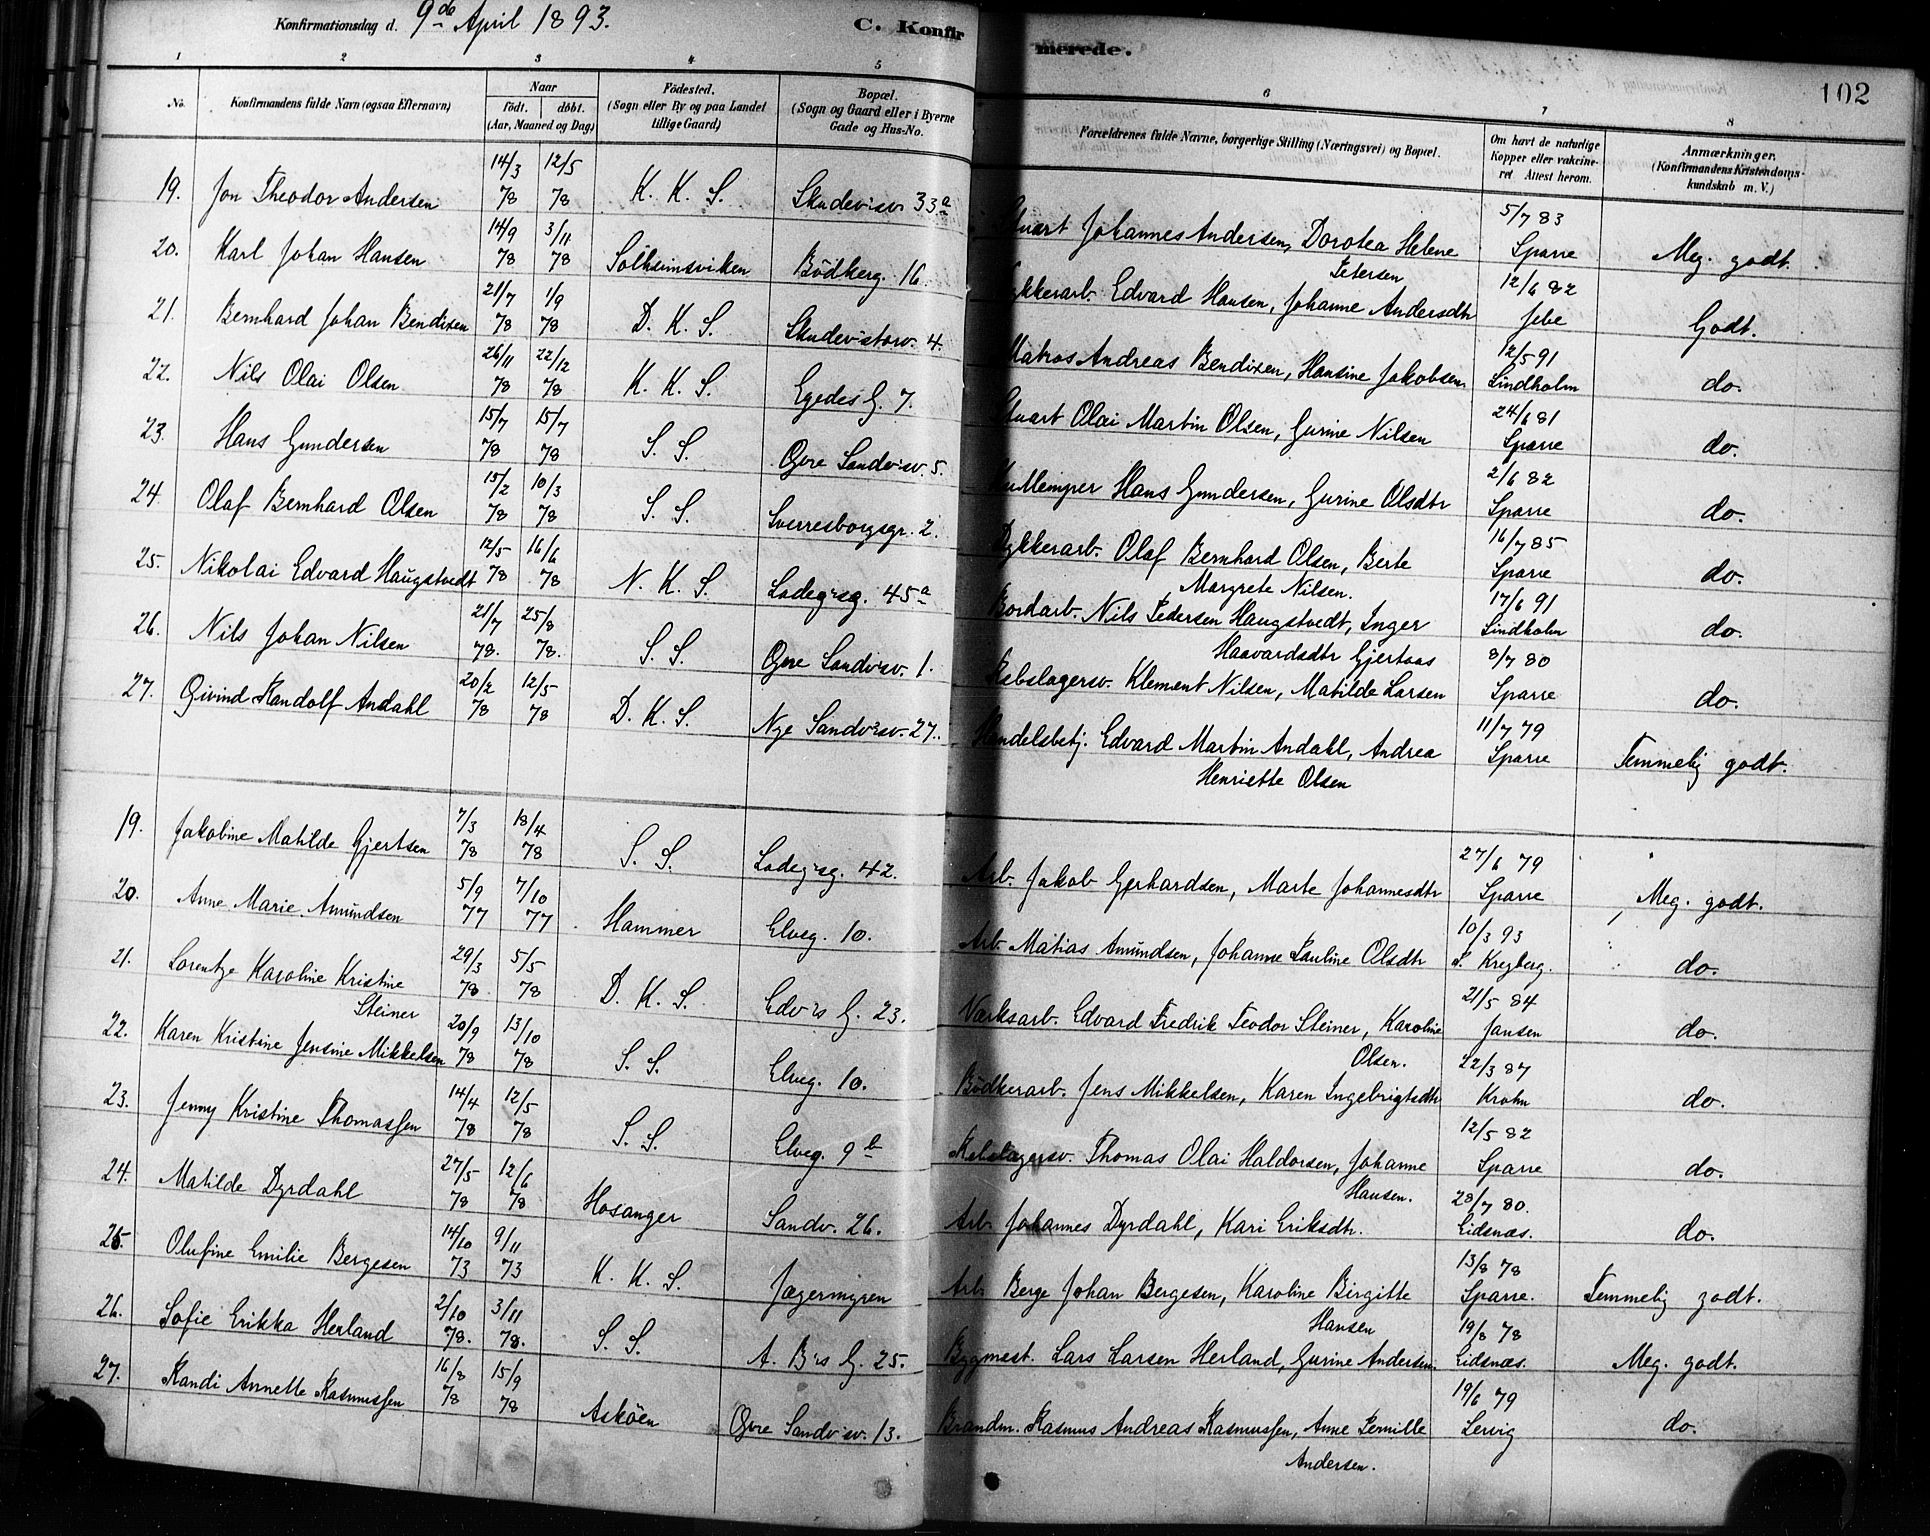 Konfirmationsdag d. 9de April 1893.
C. Konfirmerede.
102
1 2 3 4 5 6 7 8
No. Konfirmandens fulde Navn (ogsaa Efternavn) Naar født. døbt. (Aar, Maaned og Dag) Fødested. (Sogn eller By og paa Landet tillige Gaard) Bopæl. (Sogn og Gaard eller i Byerne Gade og Hus-No. Forældrenes fulde Navne, borgerlige Stilling (Næringsvei) og Bopæl. Om havt de naturlige Kopper eller vakcineret Attest herom. Anmærkninger. (Konfirmandens Kristendomskundskab m. V.)
19. Jon Theodor Andersen 14/3 78 12/5 78 K. K. S. Skudevisv. 33a Stuart Johannes Andersen, Dorotea Helene Petersen 5/7 83 Sparre Meg. godt.
20. Karl Johan Hansen 14/9 78 3/11 78 Solheimsviken Bödkerg. 16. Dykkerarb. Edvard Hansen, Johanne Andersdtr 12/6 82 Jebe Godt.
21. Bernhard Johan Bendixen 21/7 78 1/9 78 D. K. S. Skudevistorv. 4. Matros Andreas Bendixen, Hansine Jakobsen 12/5 91 Lindholm do.
22. Nils Olai Olsen 26/11 78 22/12 78 K. K. S. Egedes G. 7. Stuart Olai Martin Olsen, Gurine Nilsen 24/6 81 Sparre do.
23. Hans Gundersen 15/7 78 15/7 78 S. S. Øvre Sandvisv. 5. Hans Gundersen, Gurine Olsdtr 2/6 82 Sparre do.
24. Olaf Bernhard Olsen 15/2 78 10/3 78 S. S. Sverresborgsgr. 2. Dykkerarb. Olaf Bernhard Olsen, Berte Margrete Nilsen. 16/7 85 Sparre do.
25. Nikolai Edvard Haugstvedt 12/5 78 16/6 78 N. K. S. Ladegsg. 45a Bordarb. Nils Pedersen Haugstvedt, Inger Haavardsdtr Gjertaas 17/6 91 Lindholm do.
26. Nils Johan Nilsen 21/7 78. 25/8 78. S. S. Øvre Sandvisv. 1. Rebslagersv. Klement Nilsen, Matilde Larsen 8/7 80 Sparre do.
27. Øivind Randolf Andahl 20/2 78 12/5 78 D. K. S. Nye Sandvisv. 27. Handelsbetj. Edvard Martin Andahl, Andrea Henriette Olsen 11/7 79 Sparre Temmelig godt.
19. Jakobine Matilde Gjertsen 7/3 78 18/4 78 S. S. Ladegsg. 42. Arb. Jakob Gerhardsen, Marte Johannesdtr 27/6 79 Sparre Meg. godt.
20. Anne Marie Amundsen 5/9 77 7/10 77 Hammer Elveg. 10. Arb. Matias Amundsen, Johanne Pauline Olsdtr 10/3 93 S. Kreyberg. do.
21. Lorentze Karoline Kristine Steiner 29/3 78. 5/5 78 D. K. S. Edvis G. 23. Værksarb. Edvard Fredrik Teodor Steiner, Karoline Olsen. 21/5 84 Jansen do.
22. Karen Kristine Jensine Mikkelsen 20/9 78 13/10 78 S. S. Elveg. 10. Bödkerarb. Jens Mikkelsen, Karen Ingebrigtsdtr 22/3 87 Krohn do.
23. Jenny Kristine Thomassen 14/4 78 12/5 78 S. S. Elveg. 9b Rebslagersv. Thomas Olai Haldorsen, Johanne Hansen. 12/5 82 Sparre do.
24. Matilde Dyrdahl 27/5 78 12/6 78 Hosanger Sandv. 26. Arb. Johannes Dyrdahl, Kari Eriksdtr. 28/7 80. Eidsnæs. do.
25. Olufine Emilie Bergesen 14/10 73 9/11 73 K. K. S. Jægermyren Arb. Berge Johan Bergesen, Karoline Birgitte Hansen 13/8 78 Sparre. Temmelig godt.
26. Sofie Erikka Herland 2/10 78. 3/11 78. S. S. A. B's G. 25. Bygmest. Lars Larsen Herland, Gurine Andersen. 19/8 78 Eidsnæs. Meg. godt.
27. Randi Annette Rasmussen 16/8 78 15/9 78 Askøen Øvre Sandvisv. 13. Brandm. Rasmus Andreas Rasmussen, Anne Pernille Andersen. 19/6 79 Lervig do.